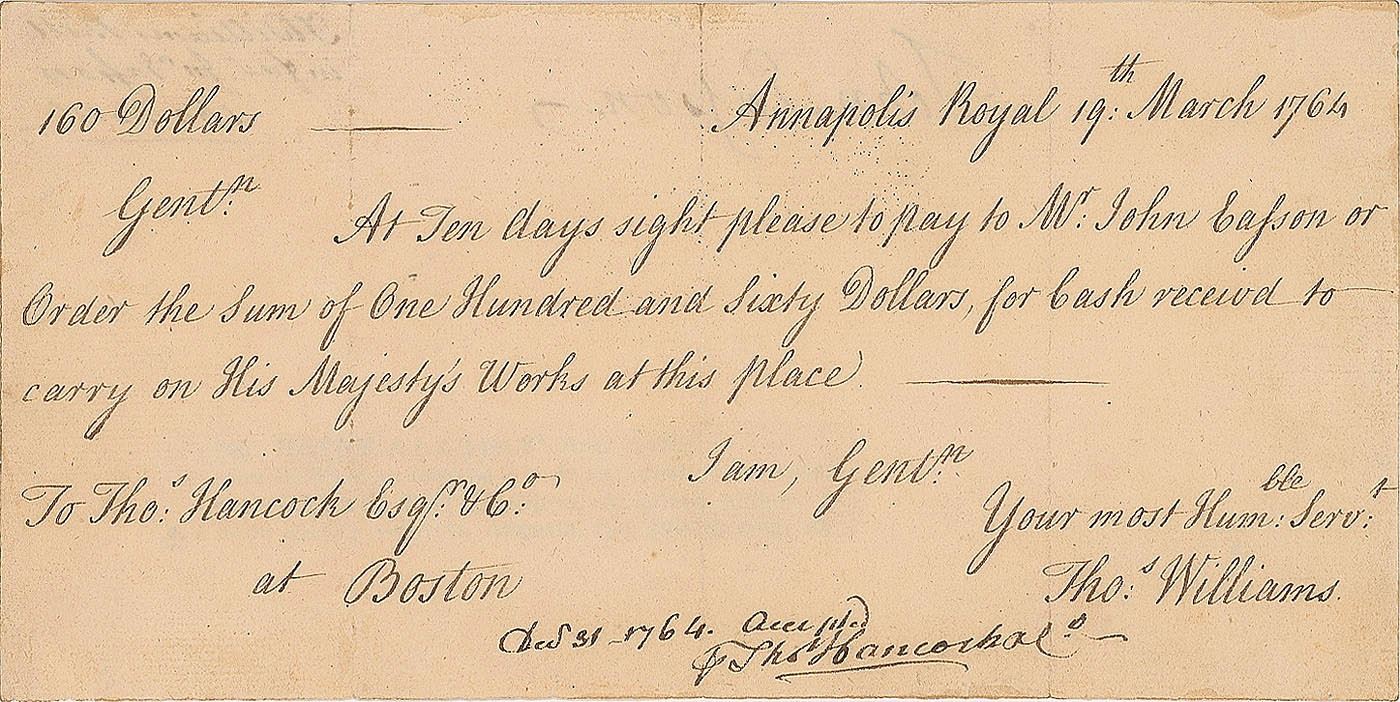 160 Dollars — Annapolis Royal 19:th March 1764
Gent:n
At Ten days sight please to pay to Mr. John Eaſson or
Order the Sum of One Hundred and Sixty Dollars, for Cash receivd to
carry on His Majesty's Works at this place. —
I am, Gent:n
To Tho:s Hancock Esqr. & Co:
Your most Hum:ble Serv:t
at Boston
Tho:s Williams.
31 - 1764. Accepted
Thos Hancock & Co